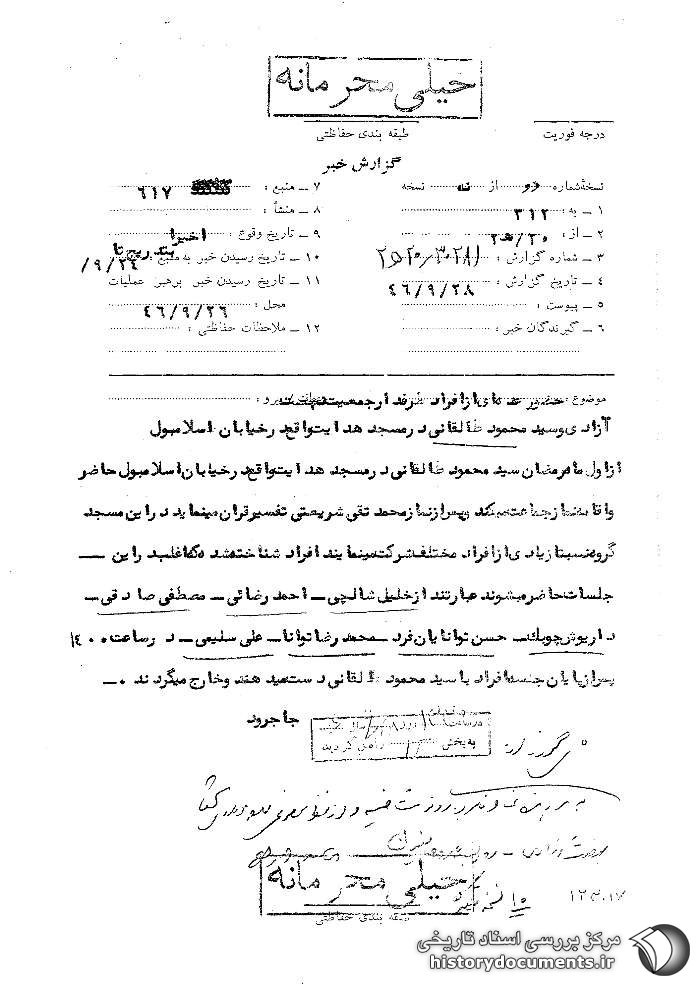 خیلی محرمانه
درجه فوریت
طبقه بندی حفاظتی
گزارش خبر
نسخه شماره دو از سه نسخه
۷ ـ منبع : ۶۱۷
۱ ـ به : ۳۱۲
۸ ـ منشأ :
۲ ـ از : ۲۰ / ه‍ ۲
۹ ـ تاریخ وقوع : اخیرا
۳ ـ شماره گزارش :
۱۰ ـ تاریخ رسیدن خبر به منبع : بتدریج تا ۹/۲۴/
۴ ـ تاریخ گزارش : ۴۶/۹/۲۸
۱۱ ـ تاریخ رسیدن خبر برهبر عملیات
۵ ـ پیوست :
محل : ۴۶/۹/۲۶
۶ ـ گیرندگان خبر :
۱۲ ـ ملاحظات حفاظتی :
موضوع : حضور عده ای از افراد طرفدار جمعیت نهضت
آزادی وسید محمود طالقانی در مسجد هدایت واقع در خیابان اسلامبول
از اول ماه رمضان سید محمود طالقانی در مسجد هدایت واقع در خیابان اسلامبول حاضر
واقامه نماز جماعت میکند وپس از نماز محمد تقی شریعتی تفسیر قران مینماید در این مسجد
گروه نسبتا زیادی از افراد مختلف شرکت مینمایند افراد شناخته شده که اغلب در این ــ
جلسات حاضر میشوند عبارتند از خلیل شالچی ـ احمد رضائی ـ مصطفی صادقی ـ
داریوش چوبک ـ حسن توانایان فرد ـ محمد رضا توانا ـ علی سلیمی ـ در ساعت ۱۴۰۰
پس از پایان جلسه افراد با سید محمود طالقانی دست میدهند وخارج میگردند ۰ ـ
جاجرود
به بخش
راهی گردید
خیلی محرمانه
طبقه بندی حفاظتی
مرکز بررسی اسناد تاریخی
historydocuments.ir